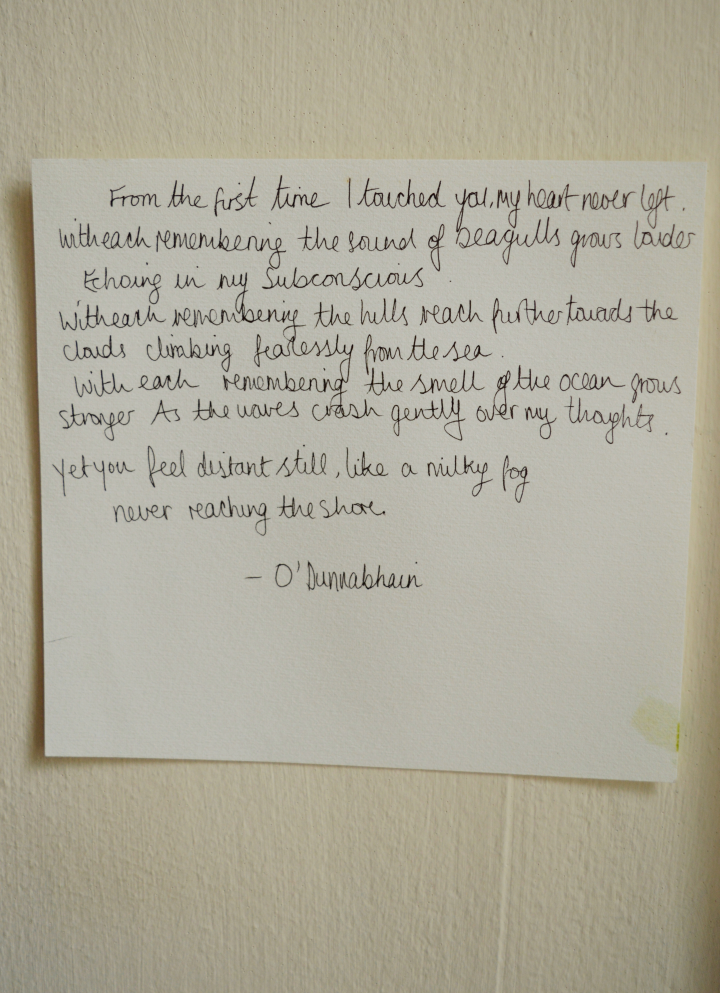 From the first time I touched you, my heart never left.
With each remembering the sound of seagulls grows louder
Echoing in my Subconscious.
With each remembering the hills reach further towards the
clouds climbing fearlessly from the sea.
With each remembering the smell of the ocean grows
stronger As the waves crash gently over my thoughts.
Yet you feel distant still, like a milky fog
never reaching the shore.
- O'Dunnabhain